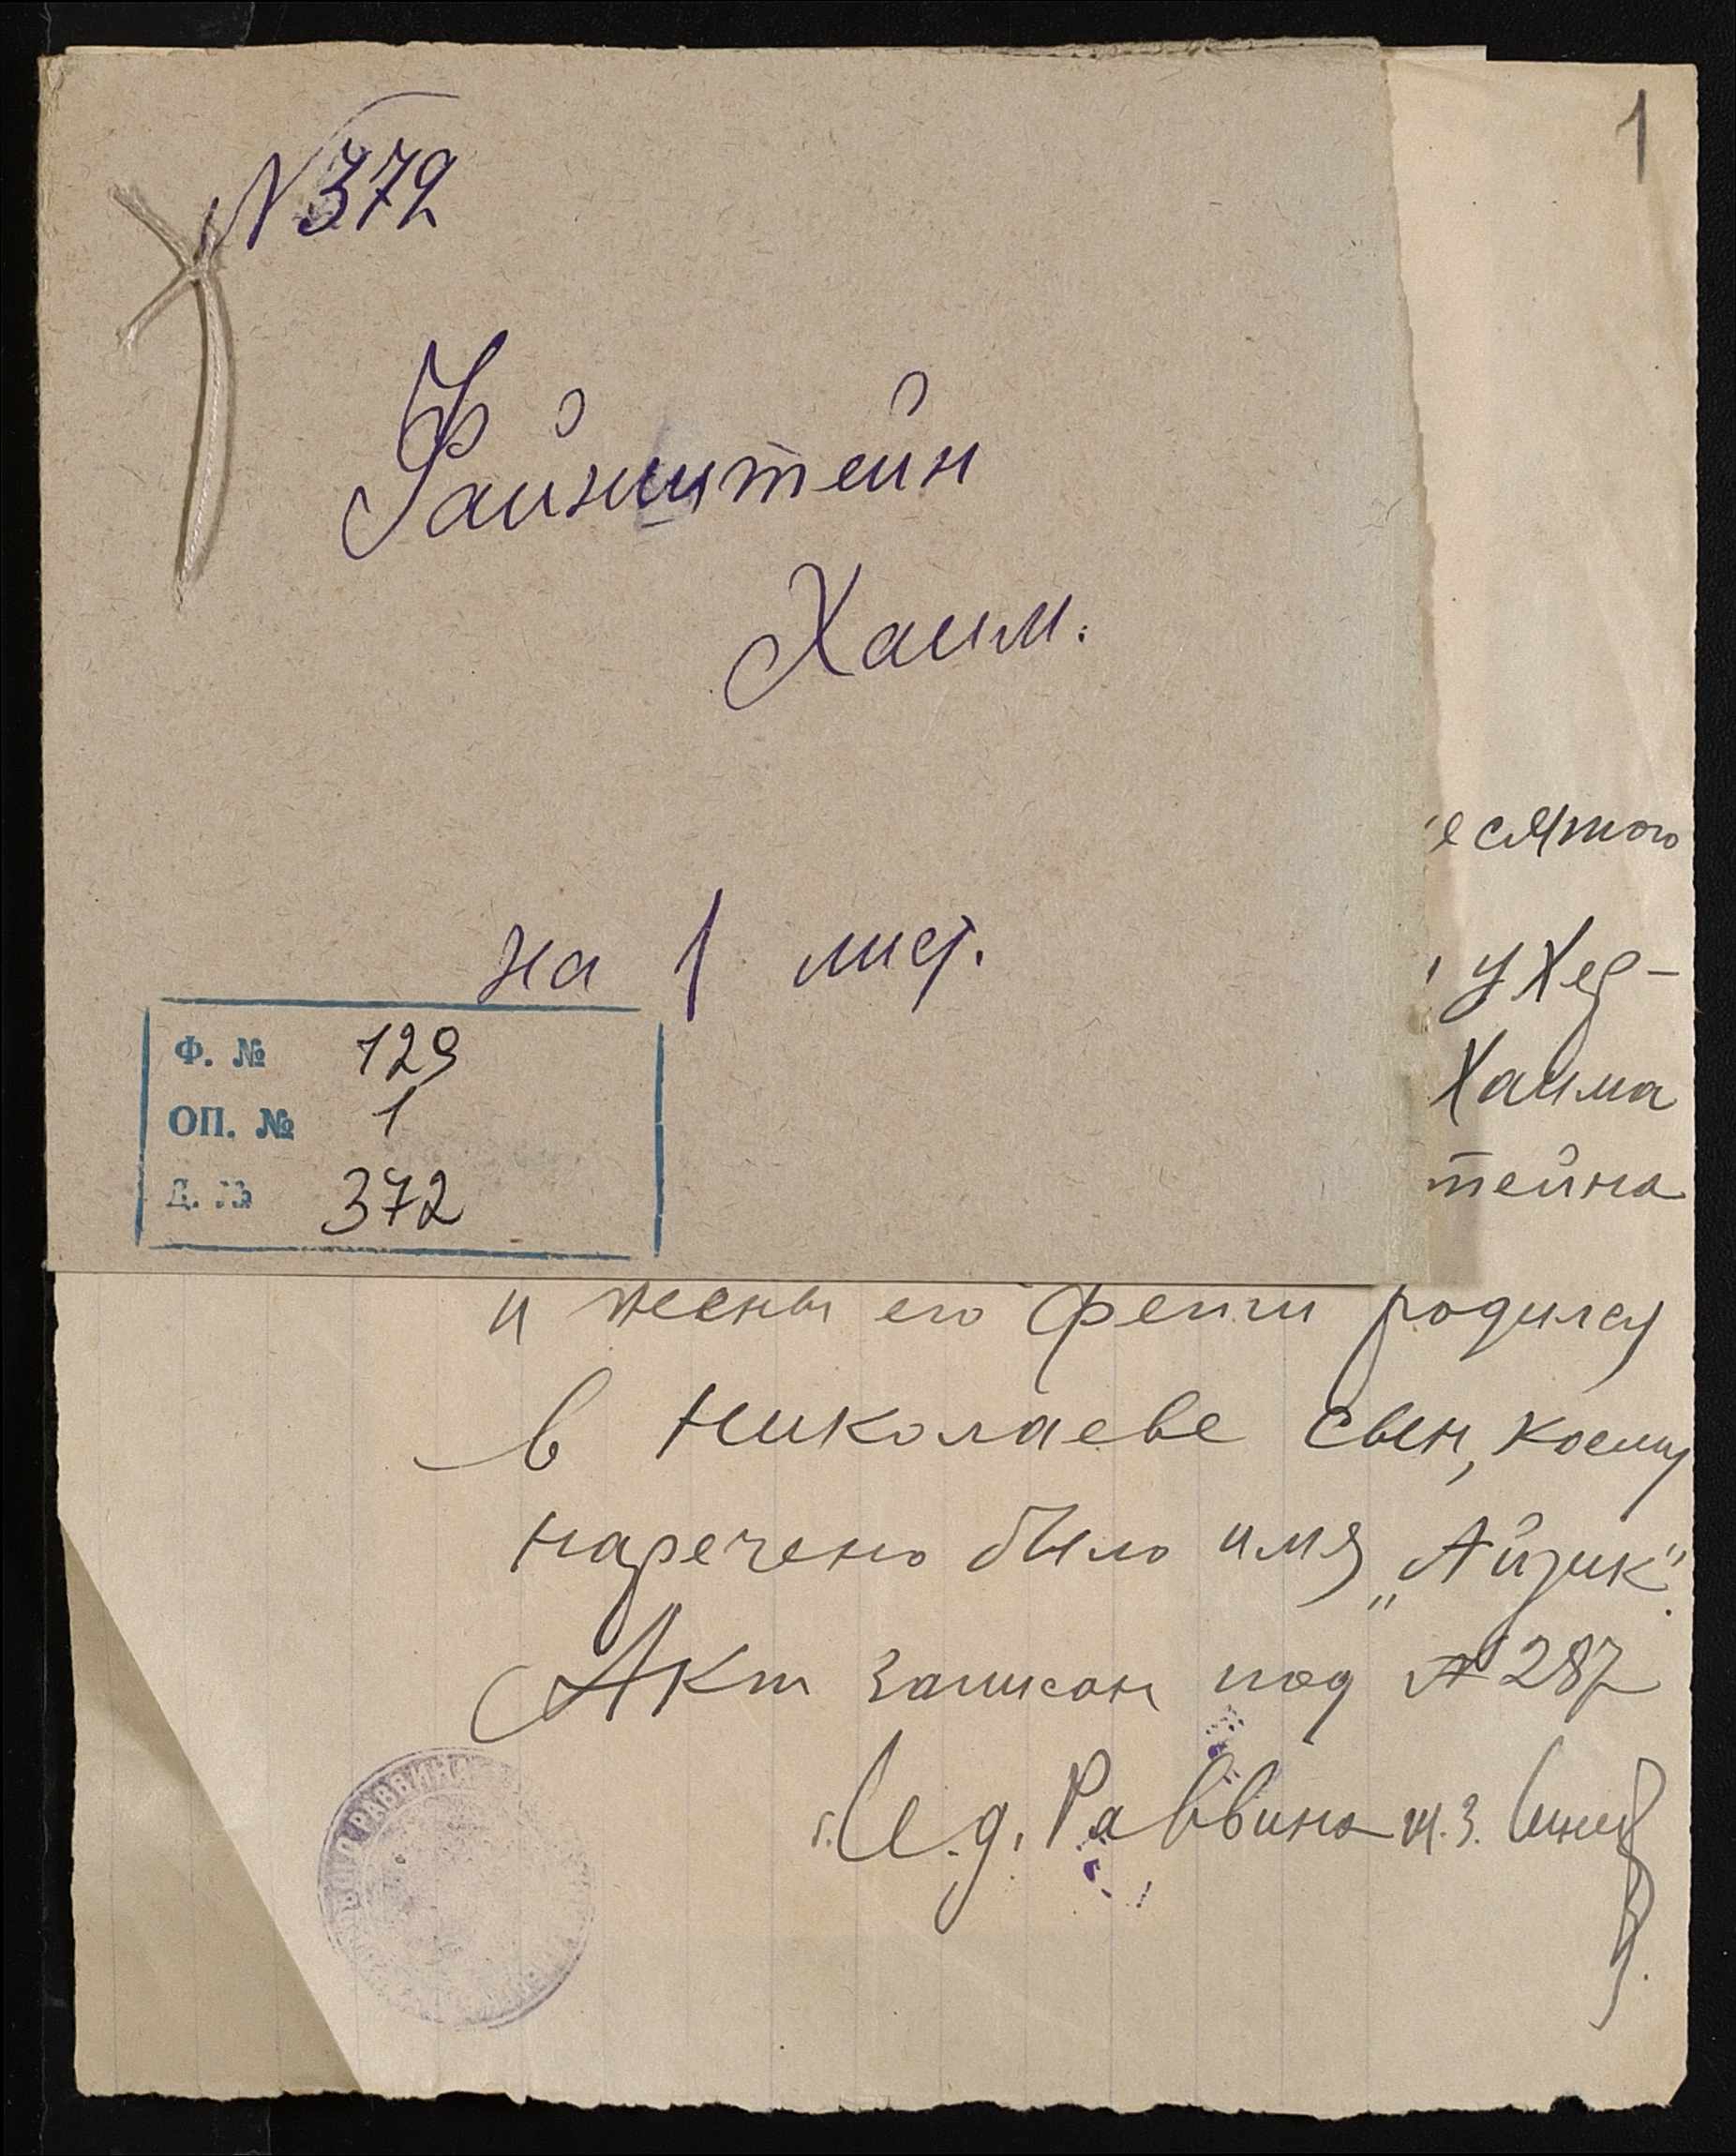 №372
1
Файнштейн
Хаим.
на 1 лист.
Ф. № 129
ОП. № 1
Д. № 372
есятого
у Хер-
Хаима
тейна
и жены его Фейги родился
в Николаеве сын, коему
наречено было имя „Айзик".
Акт записан под №287
И.д. Раввина
РАВВИНА